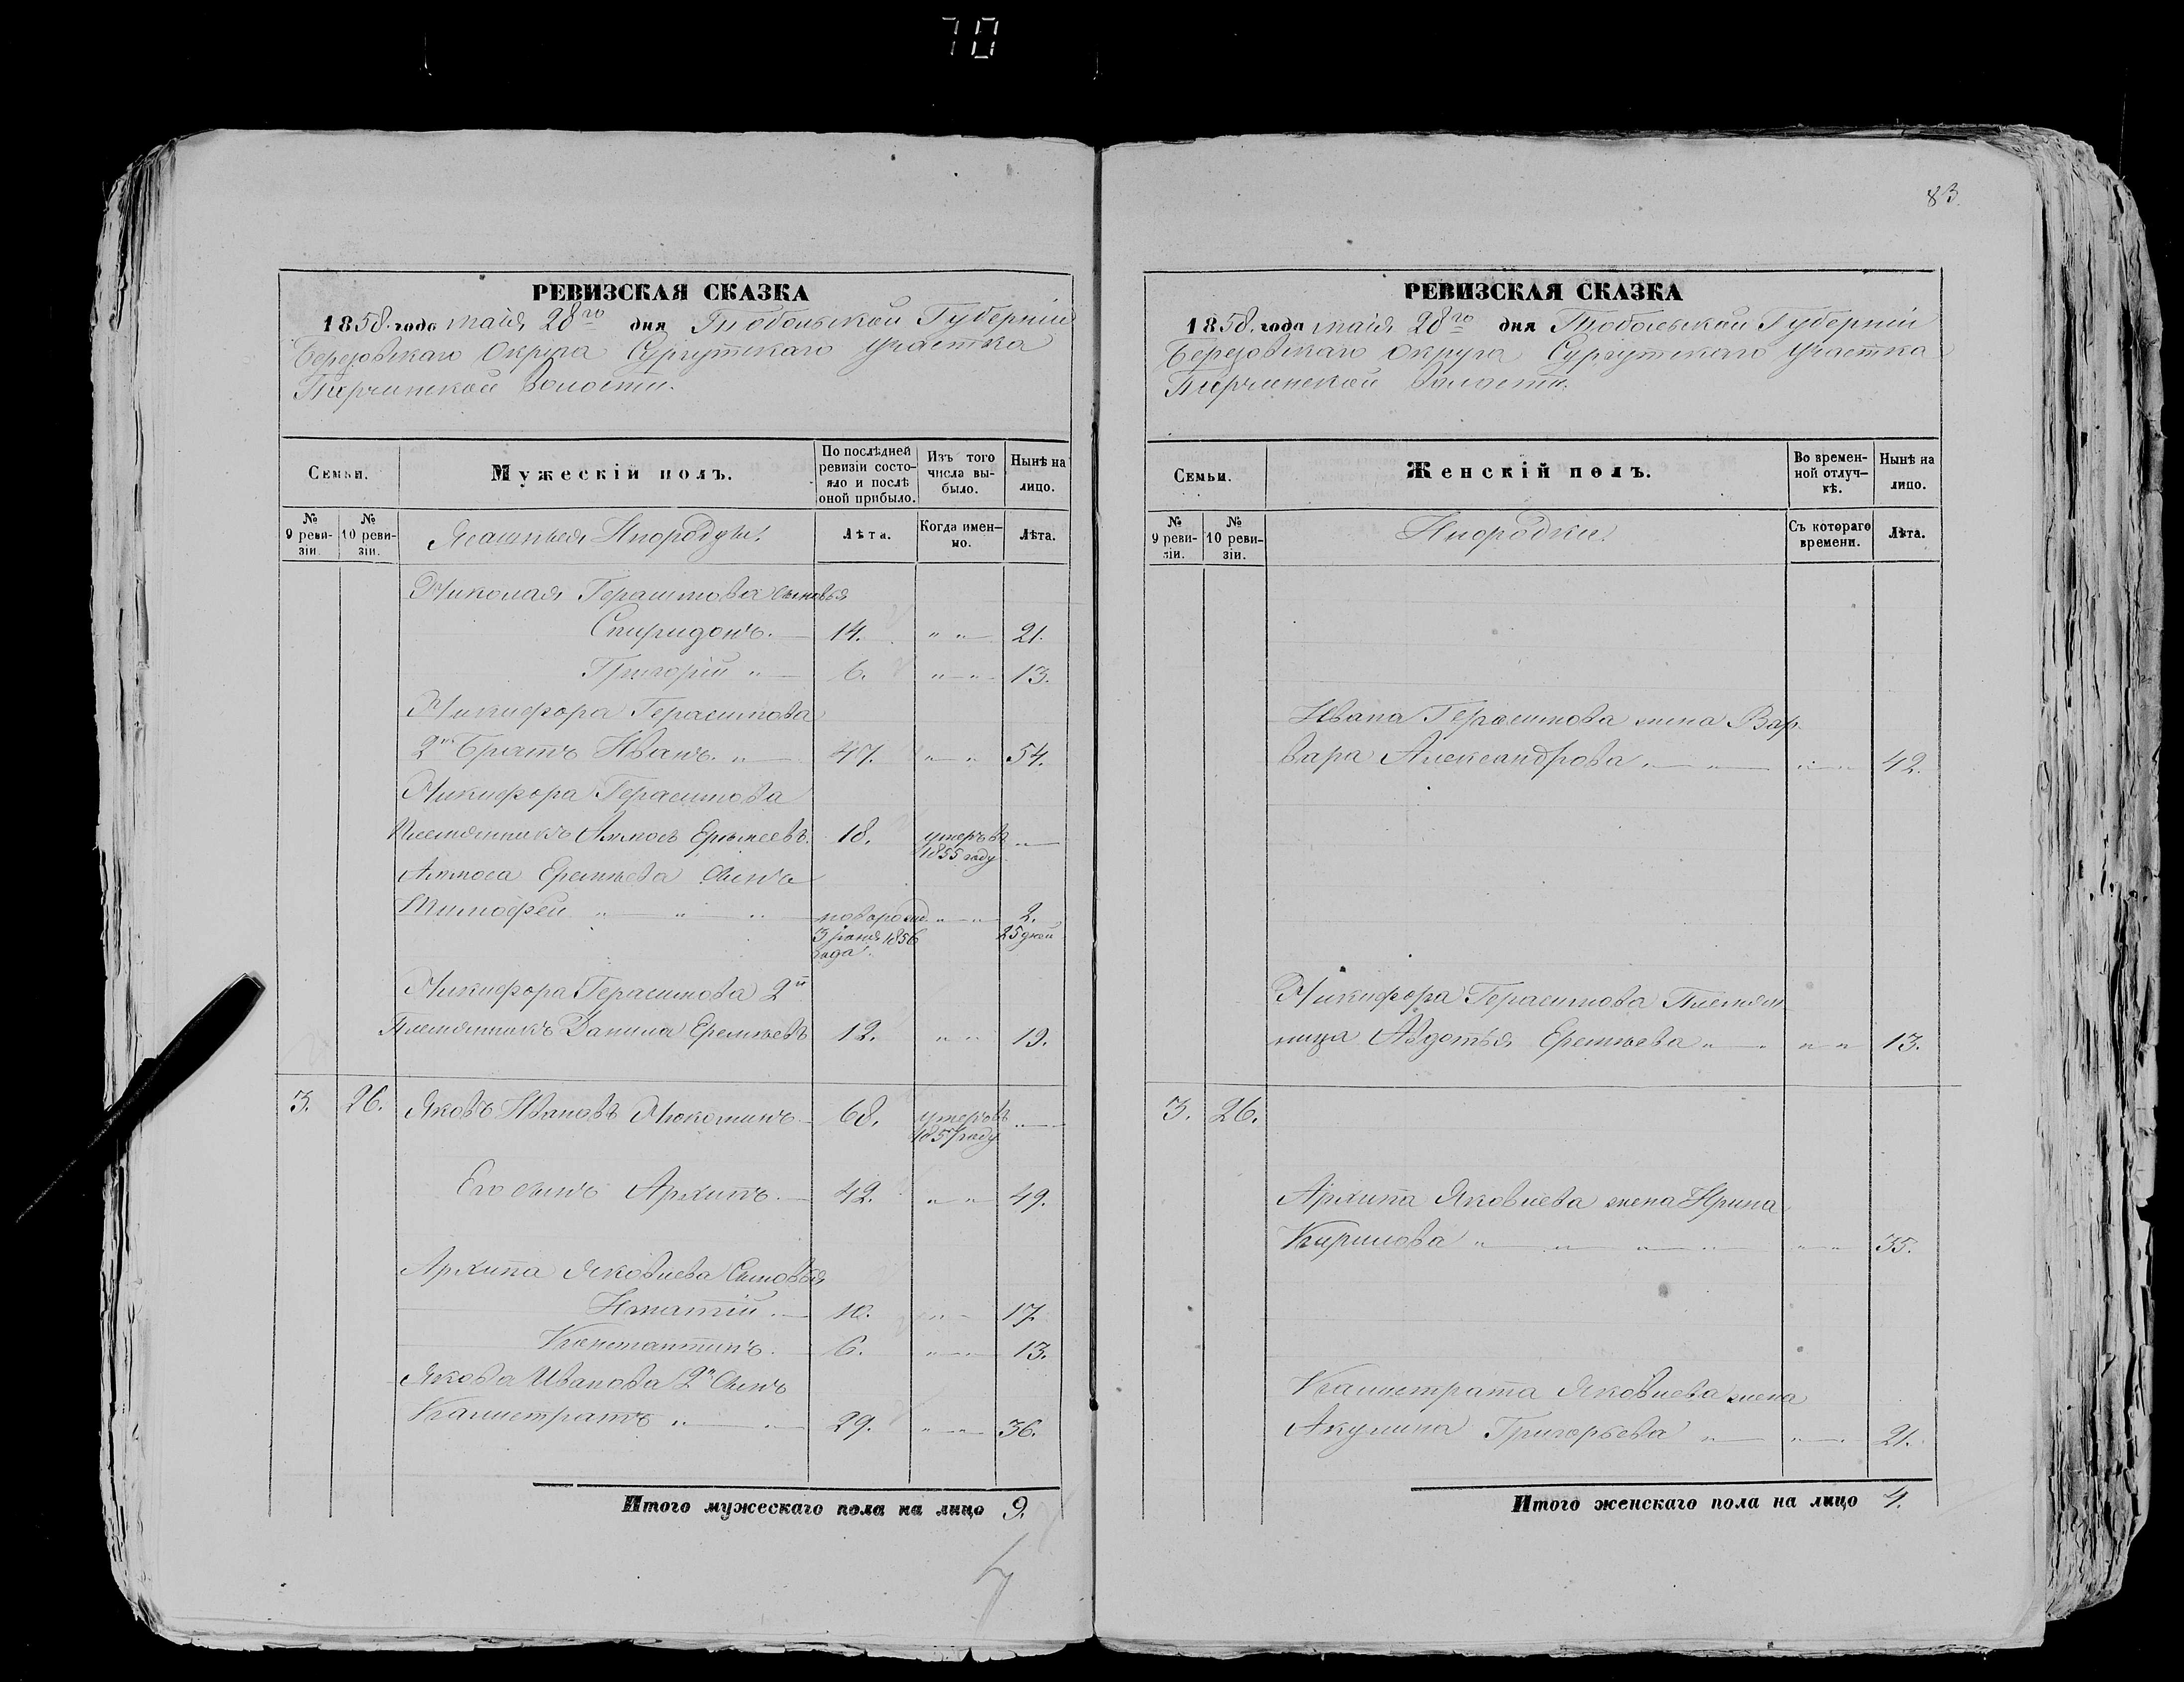 70
РЕВИЗСКАЯ СКАЗКА
1858. года маія 28го дня Тобольской Губерніи
Березовскаго Округа Сургутскаго участка
Пирчинской Волости.
Семьи.
Мужескій полъ.
По послѣдней ревизіи состояло и послѣ оной прибыло.
Изъ того числа выбыло.
Нынѣ на лицо.
№ 9 ревизіи.
№ 10 ревизіи.
Ясашныя Инородцы.
Лѣта.
Когда именно.
Лѣта.
Николая Герасимова сыновья
Спиридонъ. 14. " " 21.
Григорій " 6. " " 13.
Никифора Герасимова
2й Братъ Иванъ. " 47. " " 54.
Никифора Герасимова
Племянникъ Аммосъ Еремѣевъ. 18. умеръ въ 1855 году "
Аммоса Еремѣева Сынъ
Тимофей " " " новорожд. " " 2.
3 маія 1856 года. 25 дней
Никифора Герасимова 2й
Племянникъ Данила Еремѣевъ 12. " " 19.
3. 26. Яковъ Ивановъ 68. умеръ въ 1857 году "
Его сынъ Архипъ. 42. " " 49.
Архипа Яковлева Сыновья
Игнатій. 10. " " 17.
Константинъ. 6. " " 13.
Якова Иванова 2й Сынъ
Калистратъ " " 29. " " 36.
Итого мужескаго пола на лицо 9.
83.
РЕВИЗСКАЯ СКАЗКА
1858. года маія 28го дня Тобольской Губерніи
Березовскаго Округа Сургутскаго участка
Пирчинской Волости.
Семьи.
Женскій полъ.
Во временной отлучкѣ.
Нынѣ на лицо.
№ 9 ревизіи.
№ 10 ревизіи.
Инородки.
Съ котораго времени.
Лѣта.
Ивана Герасимова жена Вар-
вара Александрова " " " " 42.
Никифора Герасимова Племян
ница Авдотья Еремѣева " " " " 13.
3. 26.
Архипа Яковлева жена Ирина
Кирилова " " " " " " 35.
Калистрата Яковлева жена
Акулина Григорьева " " " 21.
Итого женскаго пола на лицо 4.